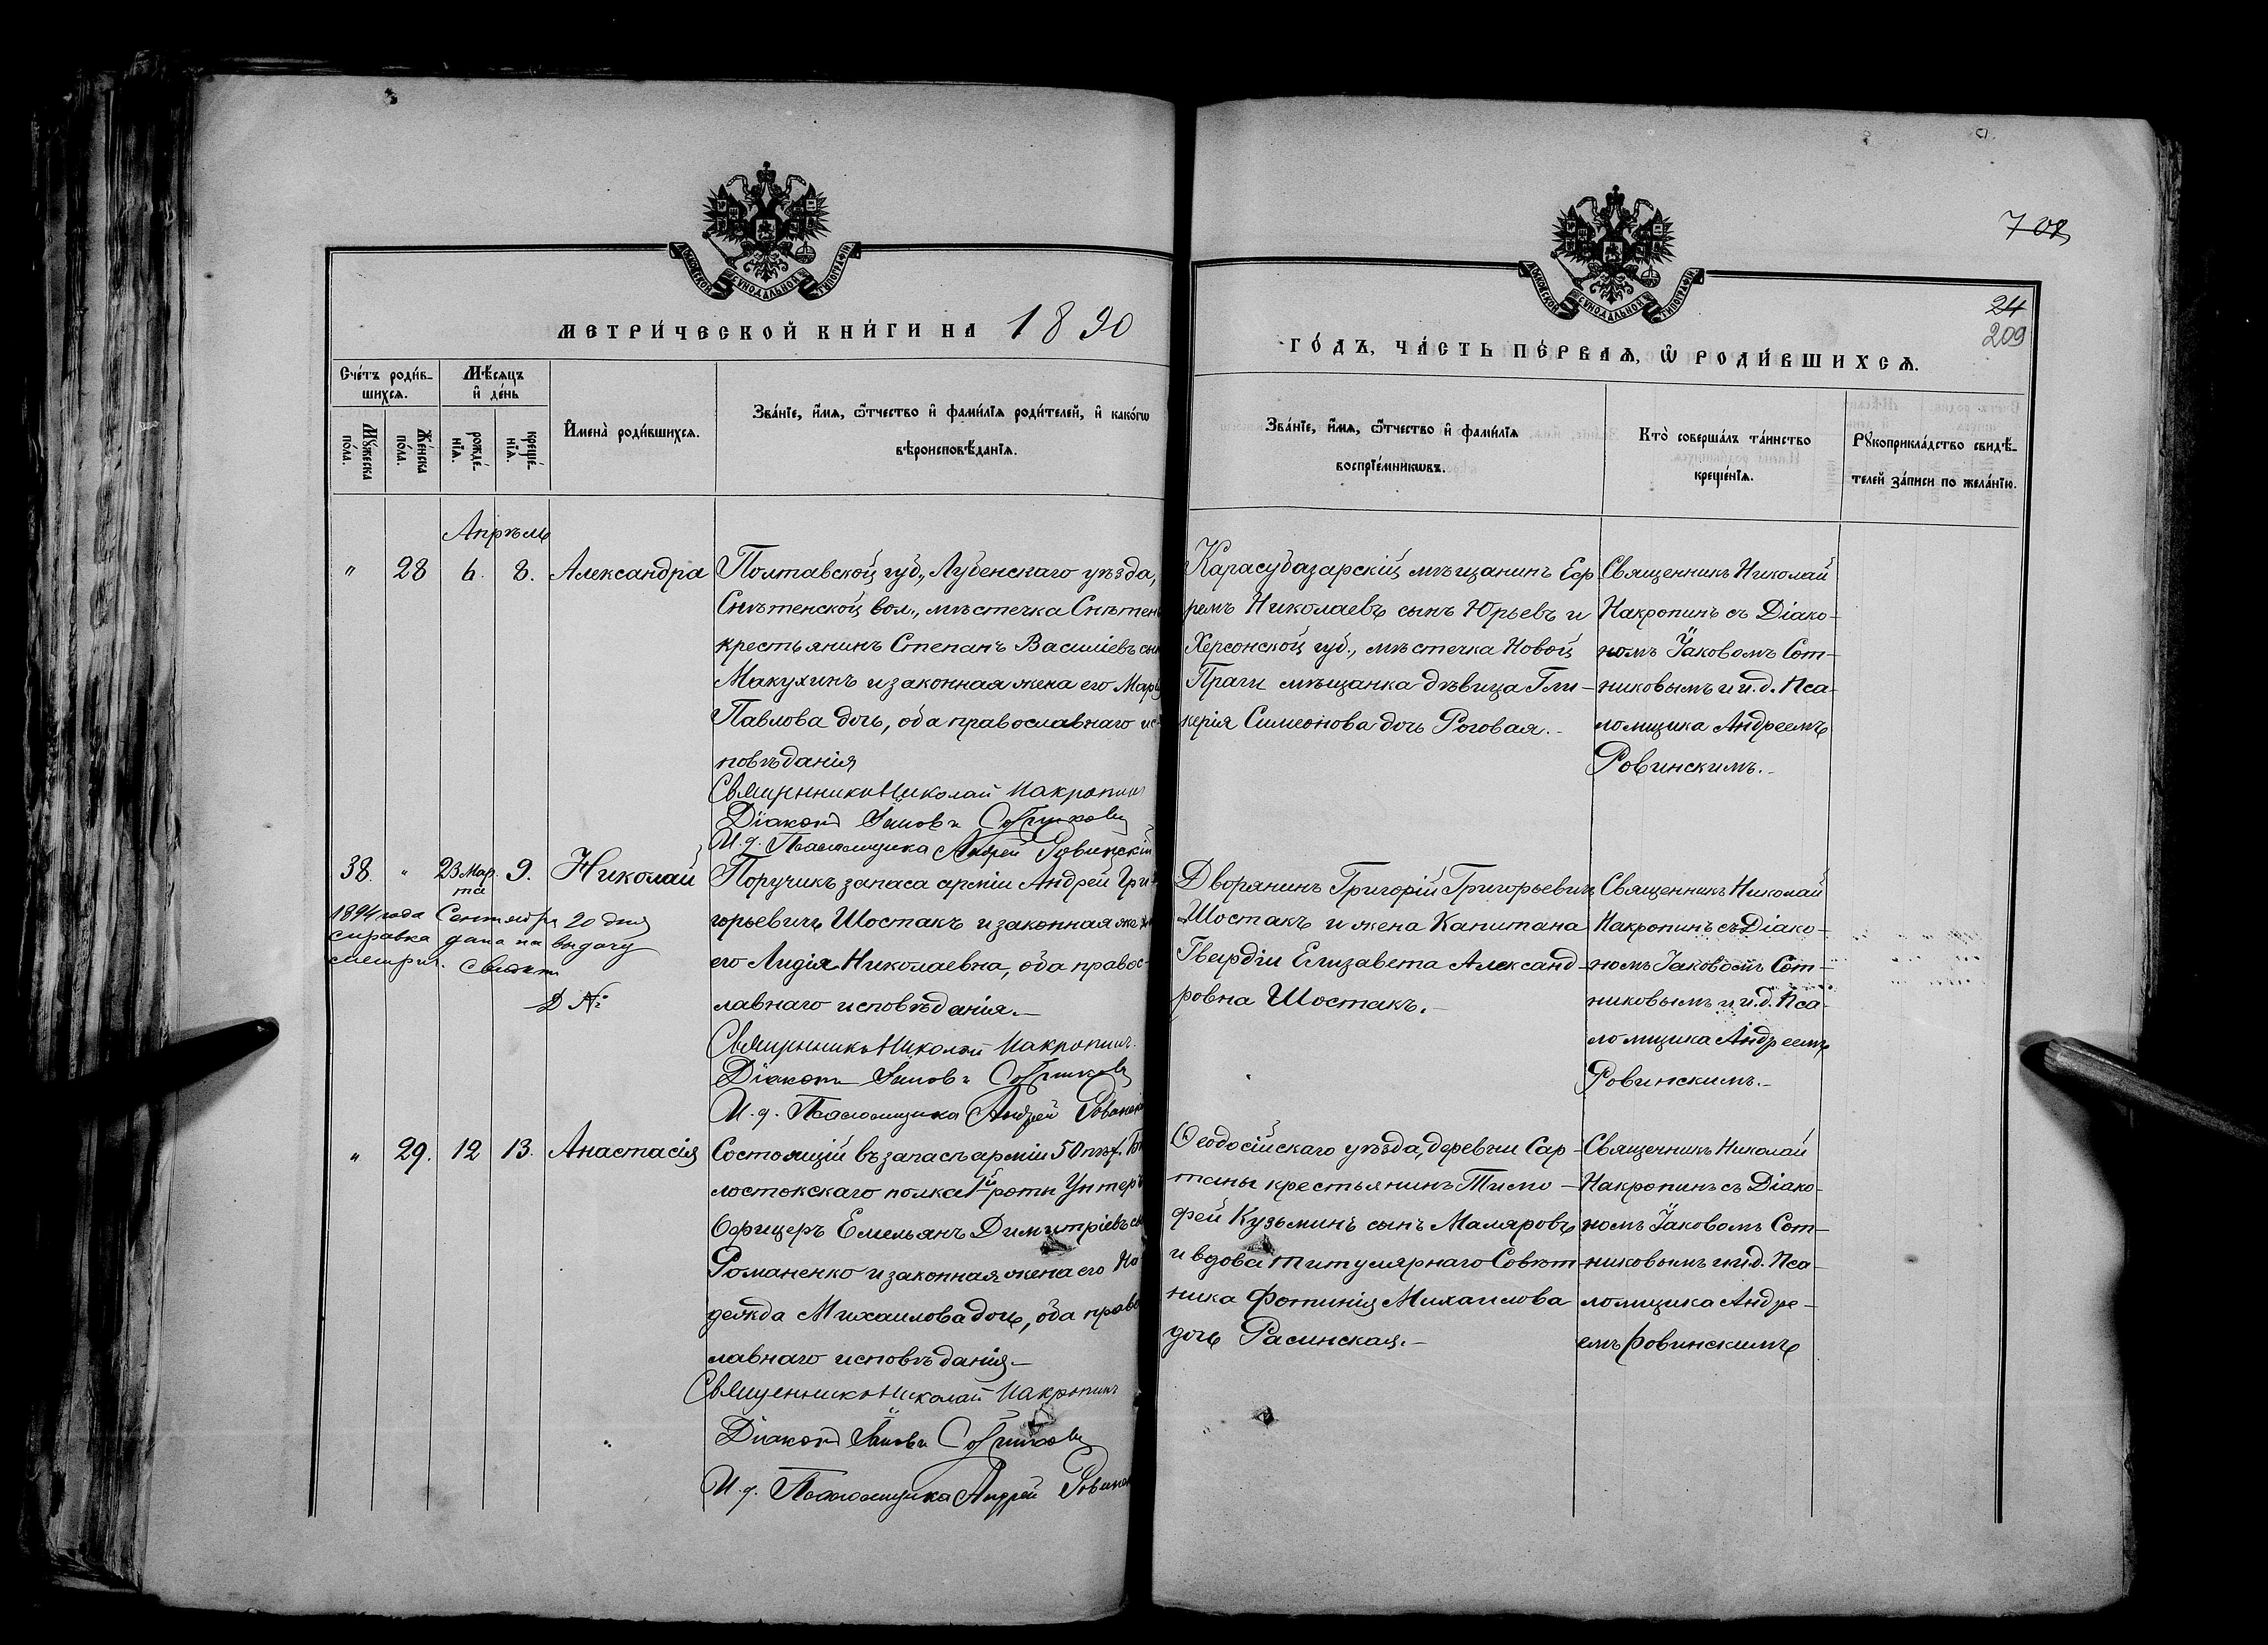 708
24
209
МОСКОВСКОЙ СѴНОДАЛЬНОЙ ТИПОГРАФІИ
МОСКОВСКОЙ СѴНОДАЛЬНОЙ ТИПОГРАФІИ
МЕТРИ́ЧЕСКОЙ КНИ́ГИ НА 1890
ГО́ДЪ, ЧА́СТЬ ПЕ́РВАѦ, Ѡ҆ РОДИ́ВШИХСѦ.
Сче́тъ роди́в-
шихсѧ.
Мѣ́сѧцъ
и҆ де́нь
Мꙋ́жеска
по́ла.
Же́нска
по́ла.
рожде́-
нїѧ.
креще́-
нїѧ.
И҆мена̀ роди́вшихсѧ.
Зва́нїе, и҆́мѧ, ѻ҆́тчество и҆ фами́лїѧ роди́телей, и҆ како́гѡ
вѣроисповѣ́данїѧ.
Зва́нїе, и҆́мѧ, ѻ҆́тчество и҆ фами́лїѧ
воспрїе́мникѡвъ.
Кто̀ соверша́лъ та́инство
креще́нїѧ.
Рꙋкоприкла́дство свидѣ́-
телей за́писи по жела́нїю.
Апрѣль
" 28 6. 8. Александра
Полтавской губ., Лубенскаго уѣзда,
Снѣтенской вол., мѣстечка Снѣтен
крестьянинъ Степанъ Василіевъ сын
Макухинъ и законная жена его Марѳ
Павлова дочь, оба православнаго ис-
повѣданія
Священникъ Николай Накропинъ
Діаконъ Іаковъ Сотниковъ
И. д. Псаломщика Андрей Ровинскій
Карасубазарскій мѣщанинъ Еф-
ремъ Николаевъ сынъ Юрьевъ и
Херсонской губ., мѣстечка Новой
Праги мѣщанка дѣвица Гли-
керія Симеонова дочь Роговая.-
Священникъ Николай
Накропинъ съ Діако-
номъ Іаковомъ Сот-
никовымъ и и.д. Пса-
ломщика Андреемъ
Ровинскимъ.-
38. " 23 Мар- 9. Николай
та
1894 года Сентября 20 дня
справка дана на выдачу
метрич. свидѣт
Д №
Поручикъ запаса арміи Андрей Гри-
горьевичъ Шостакъ и законная жена
его Лидія Николаевна, оба правос-
лавнаго исповѣданія.-
Священникъ Николай Накропинъ.
Діаконъ Іаковъ Сотниковъ
И. д. Псаломщика Андрей Ровинскі
Дворянинъ Григорій Григорьевичъ
Шостакъ и жена Капитана
Гвардіи Елизавета Александ-
ровна Шостакъ.-
Священникъ Николай
Накропинъ съ Діако-
номъ Іаковомъ Сот-
никовымъ и и.д. Пса-
ломщика Андреемъ
Ровинскимъ.-
" 29. 12 13. Анастасія
Состоящій въ запасѣ арміи 50 пѣх. Бѣ
лостокскаго полка 1й роты Унтеръ
Офицеръ Емельянъ Димитріевъ сы
Романенко и законная жена его На
дежда Михаилова дочь, оба право
лавнаго исповѣданія.-
Священникъ Николай Накропинъ
Діаконъ Іаковъ Сотниковъ
И. д. Псаломщика Андрей Ровинск
Ѳеодосійскаго уѣзда, деревни Сар-
таны крестьянинъ Тимо-
фей Кузьминъ сынъ Маляровъ
и вдова титулярнаго Совѣт-
ника Фотинія Михаилова
дочь Расинская.-
Священникъ Николай
Накропинъ съ Діако-
номъ Іаковомъ Сот-
никовымъ и и.д. Пса-
ломщика Андре-
емъ Ровинскимъ